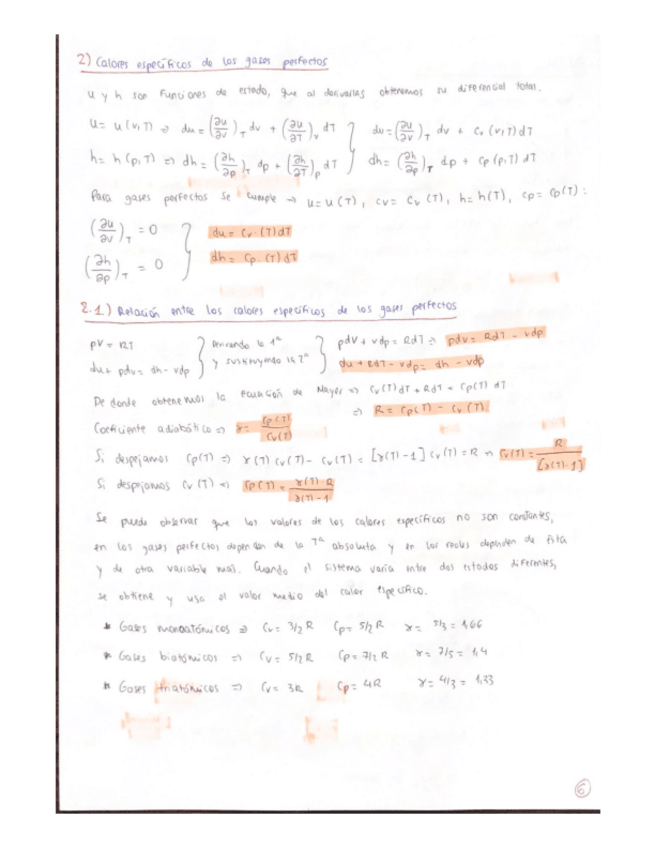 2) Calores específicos de los gases perfectos
u y h son funciones de estado, que al derivarlas obtenemos su diferencial total.
u = u(v,T) => du = (∂u/∂v)_T dv + (∂u/∂T)_v dT } du = (∂u/∂v)_T dv + Cv(v,T) dT
h = h(p,T) => dh = (∂h/∂p)_T dp + (∂h/∂T)_p dT } dh = (∂h/∂p)_T dp + Cp(p,T) dT
Para gases perfectos se cumple → u = u(T), cv = Cv(T), h = h(T), cp = Cp(T) :
(∂u/∂v)_T = 0 } du = Cv·(T) dT
(∂h/∂p)_T = 0 } dh = Cp·(T) dT
2.1) Relación entre los calores específicos de los gases perfectos
pV = RT } Derivando la 1ª } pdV + vdp = RdT => pdv = RdT - vdp
du + pdv = dh - vdp } y sustituyendo } du + RdT - vdp = dh - vdp
De donde obtenemos la ecuación de Mayer => Cv(T)dT + RdT = Cp(T) dT
=> R = Cp(T) - Cv(T)
Coeficiente adiabático => γ = Cp(T)/Cv(T)
Si despejamos Cp(T) => γ(T) Cv(T) - Cv(T) = [γ(T) - 1] Cv(T) = R => Cv(T) = R/[γ(T)-1]
Si despejamos Cv(T) => Cp(T) = γ(T)·R/γ(T)-1
Se puede observar que los valores de los calores específicos no son constantes,
en los gases perfectos dependen de la Tª absoluta y en los reales dependen de ésta
y de otra variable más. Cuando el sistema varía entre dos estados diferentes,
se obtiene y usa el valor medio del calor específico.
* Gases monoatómicos => Cv = 3/2 R Cp = 5/2 R γ = 5/3 = 1,66
* Gases biatómicos => Cv = 5/2 R Cp = 7/2 R γ = 7/5 = 1,4
* Gases triatómicos => Cv = 3R Cp = 4R γ = 4/3 = 1,33
6